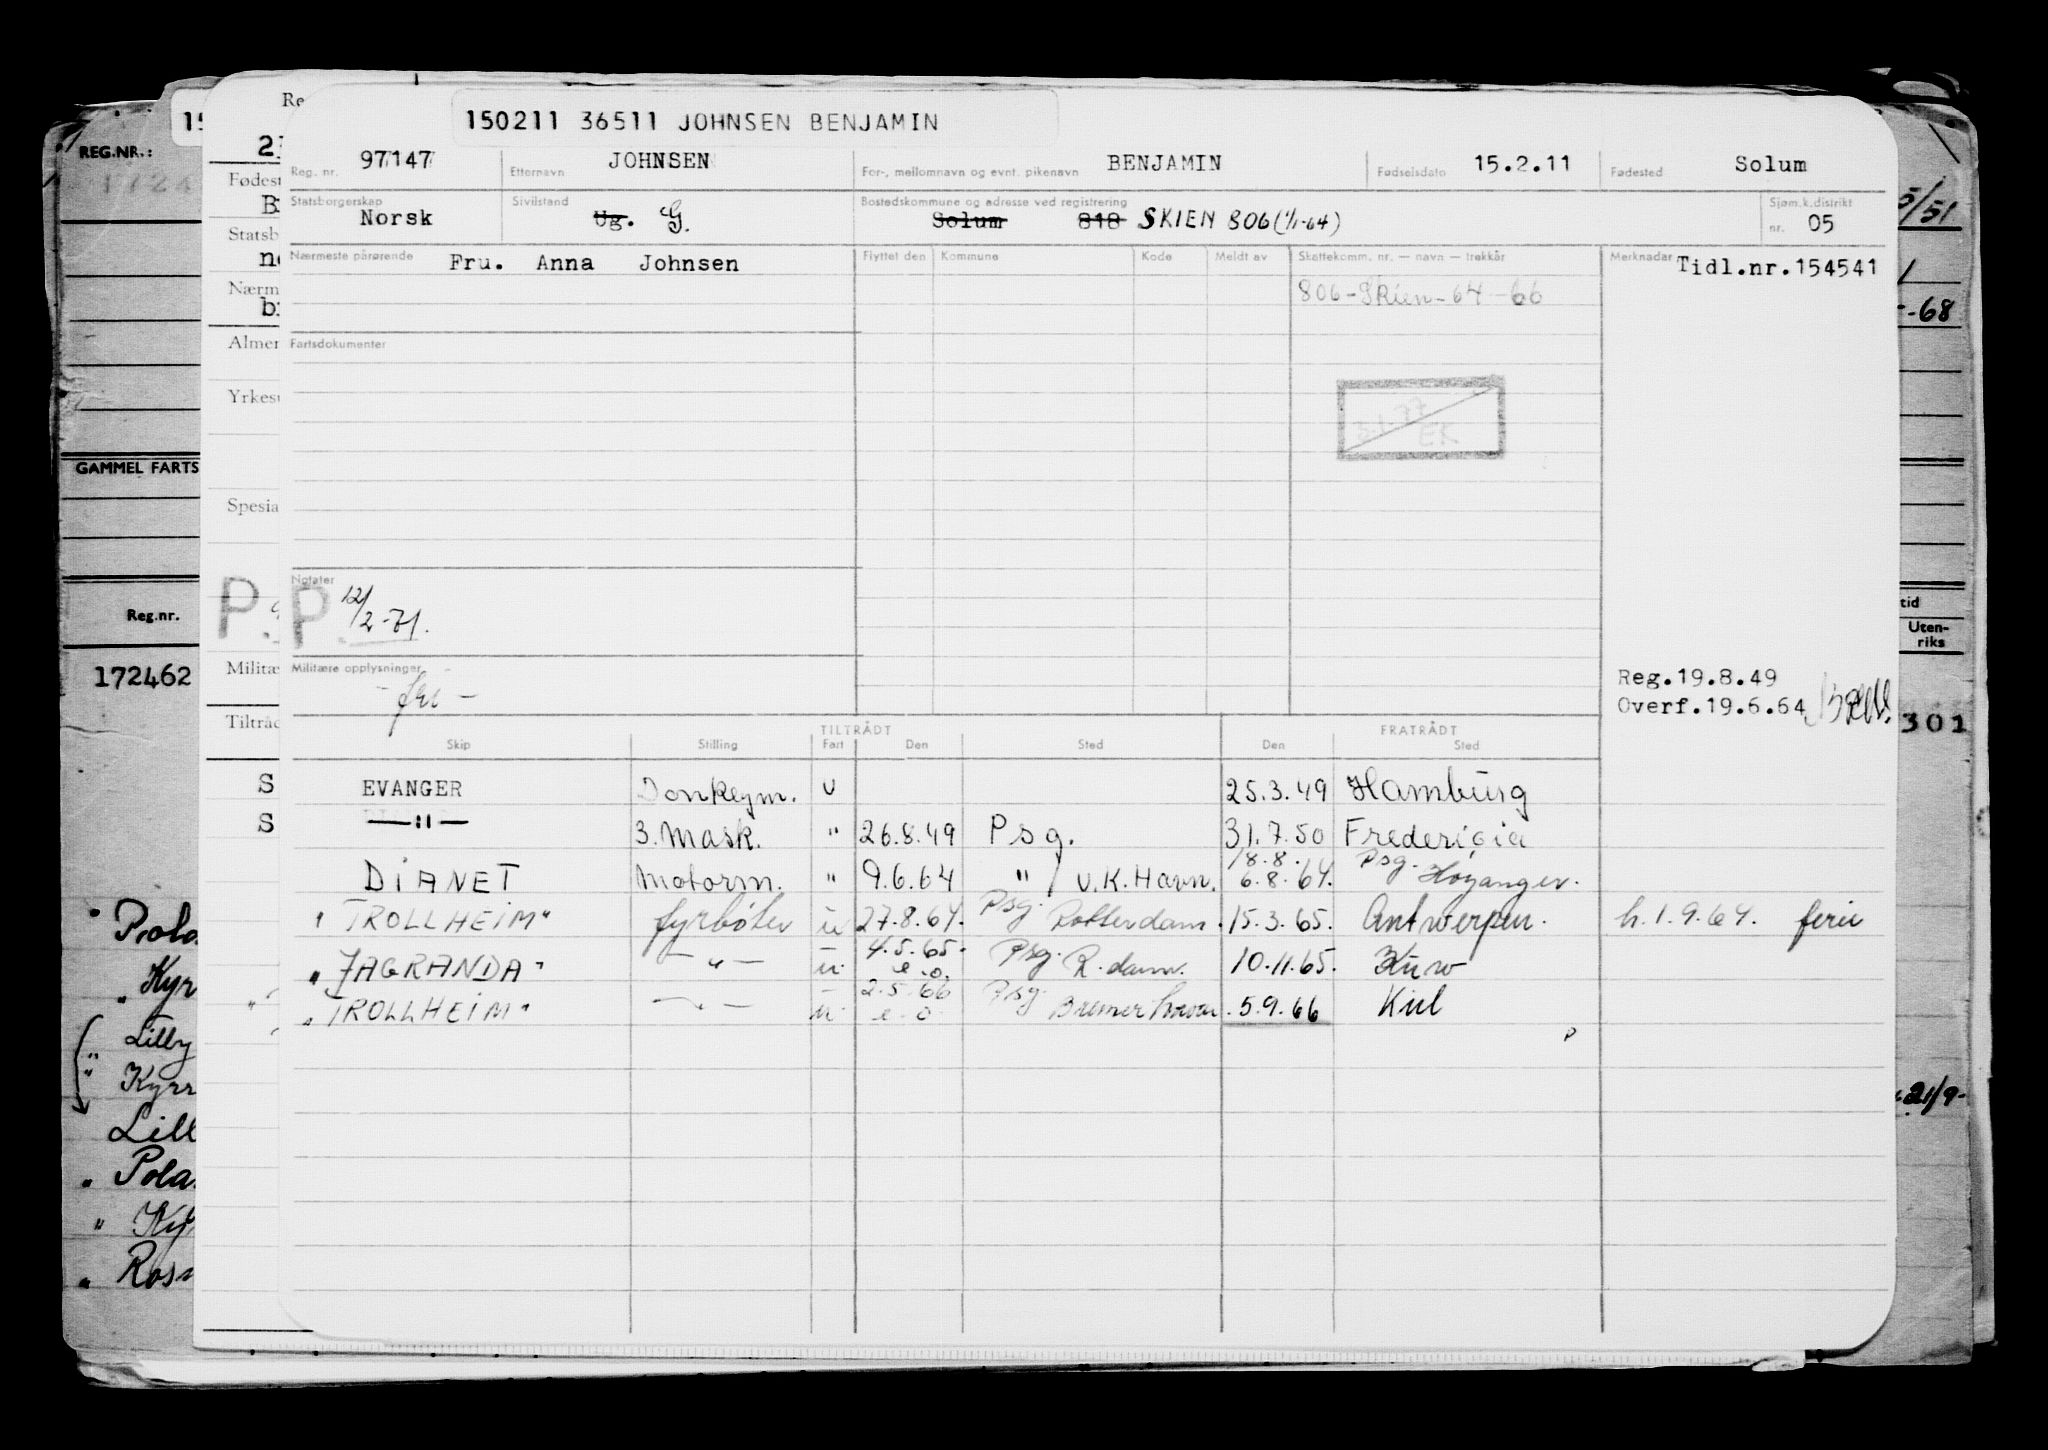 150211 36511 JOHNSEN BENJAMIN
Reg. nr. 97147 Etternavn JOHNSEN For-, mellomnavn og evnt. pikenavn BENJAMIN Fødselsdato 15.2.11 Fødested Solum
Statsborgerskap Norsk Sivilstand Ug. G. Bostedskommune og adresse ved registrering Solum 818 SKIEN 806 (1/1-64) Sjøm.k.distrikt nr. 05
Nærmeste pårørende Fru. Anna Johnsen Flyttet den Kommune Kode Meldt av Skattekomm. nr. — navn — trekkår Merknader Tidl.nr.154541
806-Skien-64-66
Fartsdokumenter
3.1.77
EK
Notater
P 12/2-71.
Militære opplysninger
- fri -
Reg.19.8.49
Overf.19.6.64
TILTRÅDT FRATRÅDT
Skip Stilling Fart Den Sted Den Sted
EVANGER Donkeym. U 25.3.49 Hamburg
—"— 3. Mask. " 26.8.49 Psg. 31.7.50 Fredericia
DIANET Motorm. " 9.6.64 " / U.K. Havn. 18.8. 6.8.64. Psg. Høyanger.
" TROLLHEIM" fyrbøter u 27.8.64. Psg. Rotterdam. 15.3.65. Antwerpen. h.1.9.64. ferie
" JAGRANDA" —"— u. 4.5.65. e.o. Psg. R.dam. 10.11.65.
" TROLLHEIM" —"— u. 2.5.66 e.o. Psg. Bremerhaven. 5.9.66 Kiel
P
REG.NR.:
GAMMEL FARTS
Reg.nr.
172462
Fødest
Statsb
Nærm
Almen
Yrkes
Spesia
P.
Militæ
Tiltråd
S
S
Lilly
Kyrr
Lill
Pola
Ky
5/51
-68
tid
Uten-
riks
301
21/9-